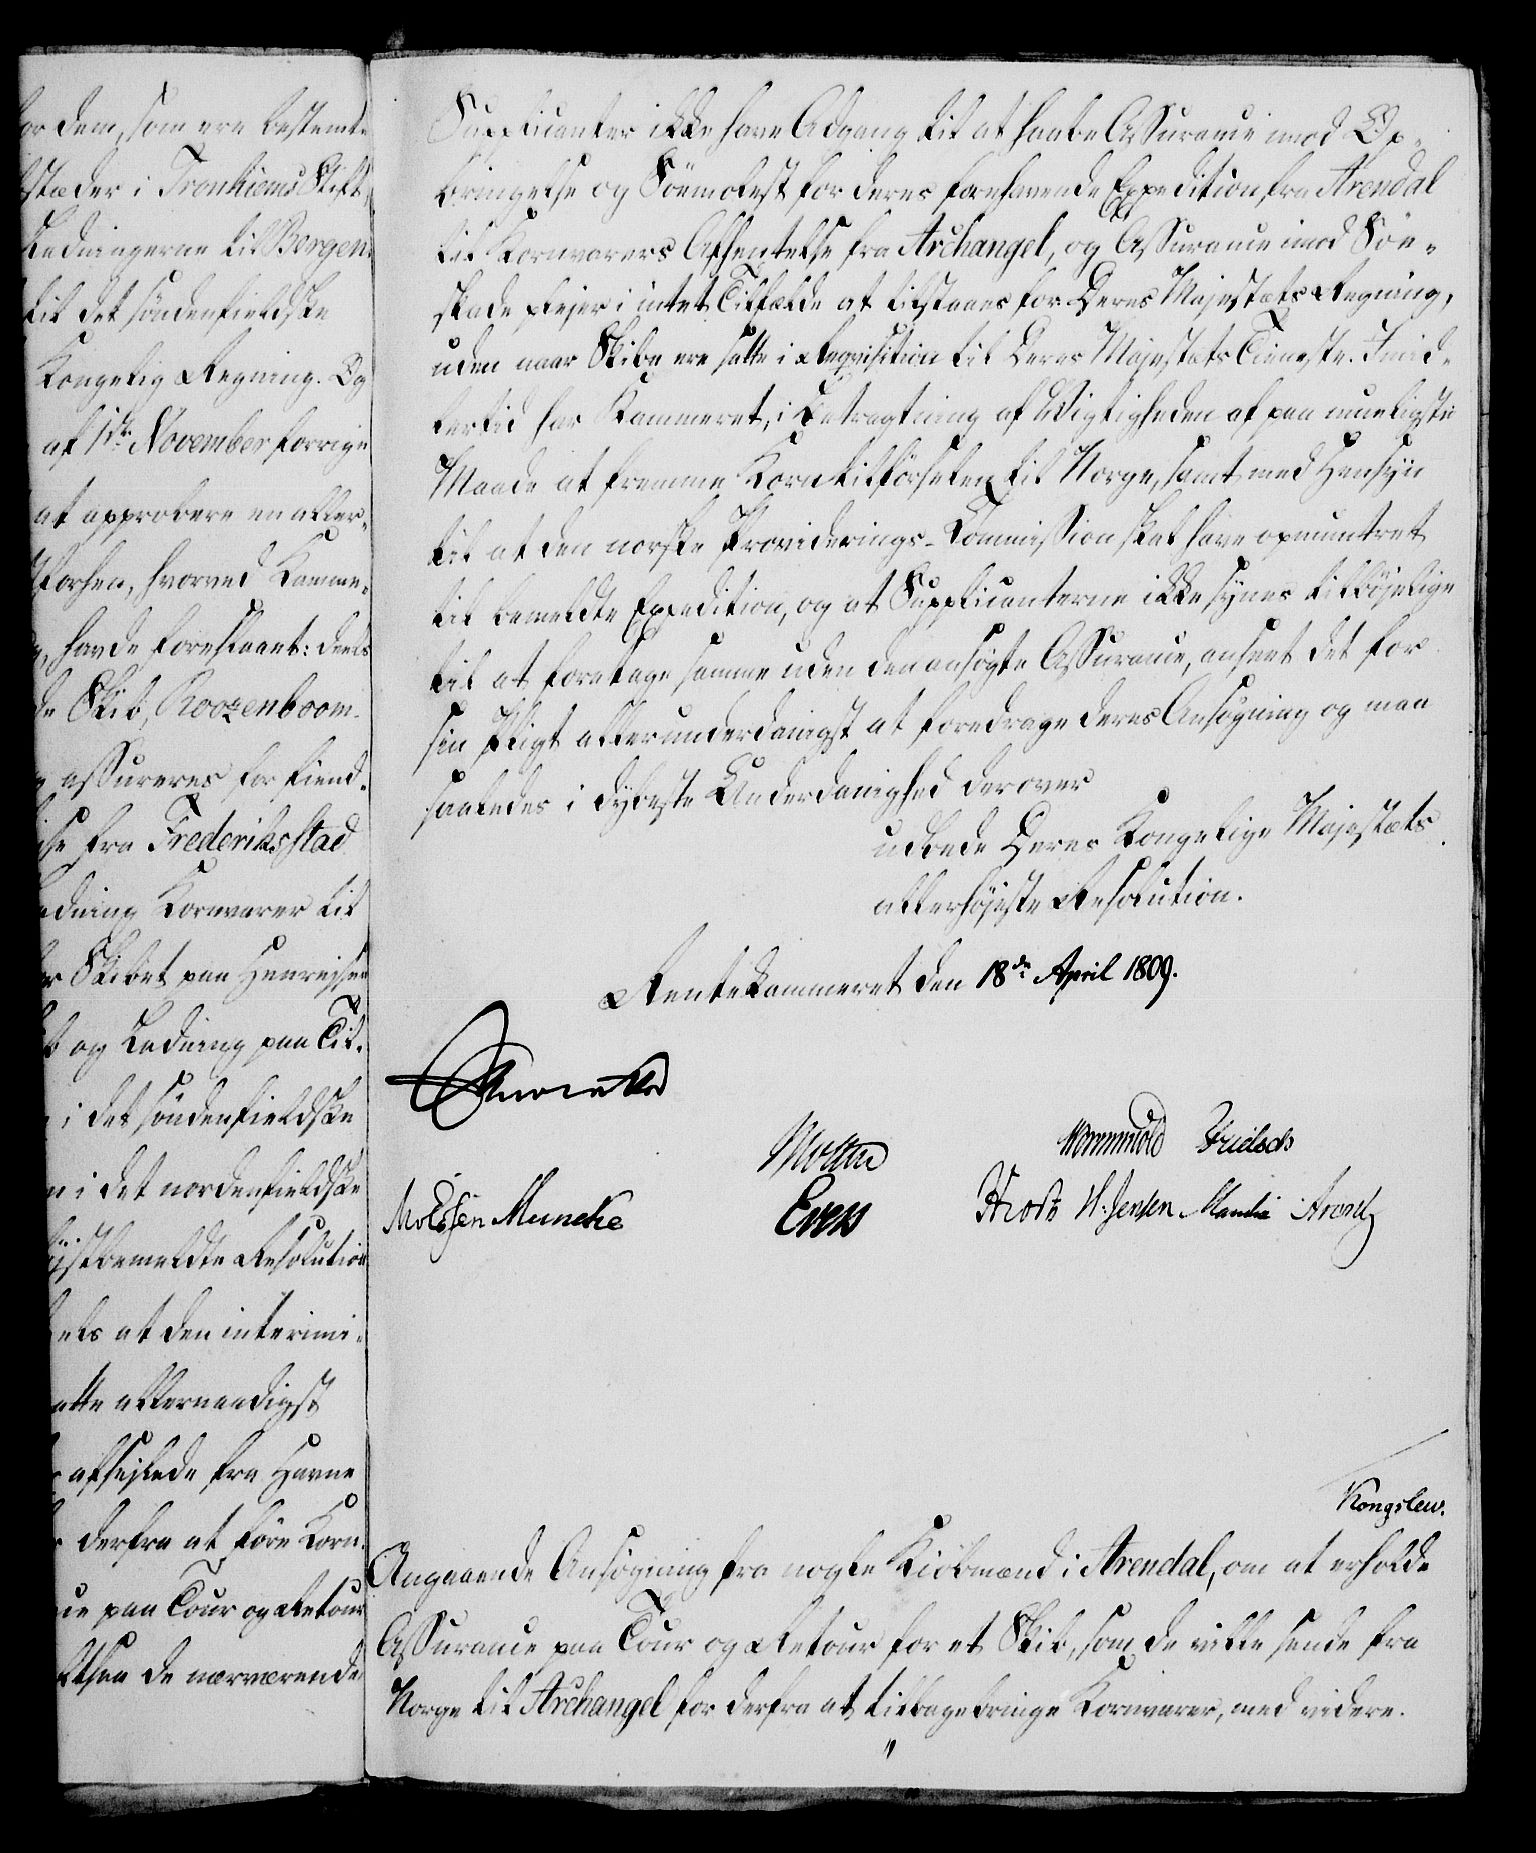 for dem, som ere bestemte
stæder i Tronhiems Stift,
Ladningerne til Bergen.
til det söndenfieldske
Kongelig Regning. Og
af 1ste November forrige
at approbere en aller-
forhen, hvorved Kamme-
havde foreslaaet: deels
de Skib, Roozenboom
assureres for fiend-
ise fra Frederiksstad
adning Kornvarer til
Skibet paa Henreisen
og Ladning paa Til-
i det söndenfieldske
i det nordenfieldske
stbemeldte Resolution
at den interimi-
atte allernaadigst
afseilede fra Havne
derfra at före Korn-
ce paa Tour og Retour
altsaa de nærværende
Supplicanter ikke have Adgang til at haabe Assurance mod Op-
bringelse og Sömolest for deres forehavende Expedition fra Arendal
til Kornvarers Afhentelse fra Archangel, og Assurance mod Söe-
skade plejer i intet Tilfælde at tilstaaes for Deres Majestæts Regning,
uden naar Skibe ere satte i Reqvisition til Deres Majestæts Tieneste. Imid-
lertid har Kammeret, i Betragtning af Vigtigheden af paa mueligste
Maade at fremme Korntilförselen til Norge, samt med Hensyn
til at den norske Providerings-Commission skal have opmuntret
til bemeldte Expedition, og at Supplicanterne ikke synes tilböjelige
til at foretage samme uden den ansögte Assurance, anseet det for
sin Pligt allerunderdanigst at foredrage deres Ansögning og maa
saaledes i dybeste Underdanighed derover
udbede Deres Kongelige Majestæts
allerhöjeste Resolution.
Rentekammeret den 18de April 1809.
Moltke
Wormskiold
M v Essen Muncke Evers H. Jensen Arentz
Kongslew.
Angaaende Ansögning fra nogle Kiöbmænd i Arendal, om at erholde
Assurance paa Tour og Retour for et Skib, som de ville sende fra
Norge til Archangel for derfra at tilbagebringe Kornvarer, med videre.